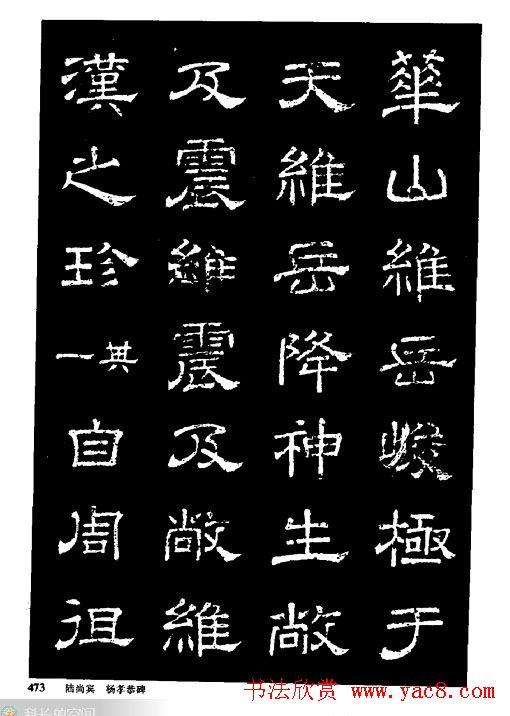 華山維岳峻極于
天維岳降神生敞
及震維震及敞維
漢之珍其一自周徂
473 陆尚宾 杨孝恭碑
书法欣赏 www.yac8.com
科长的空间